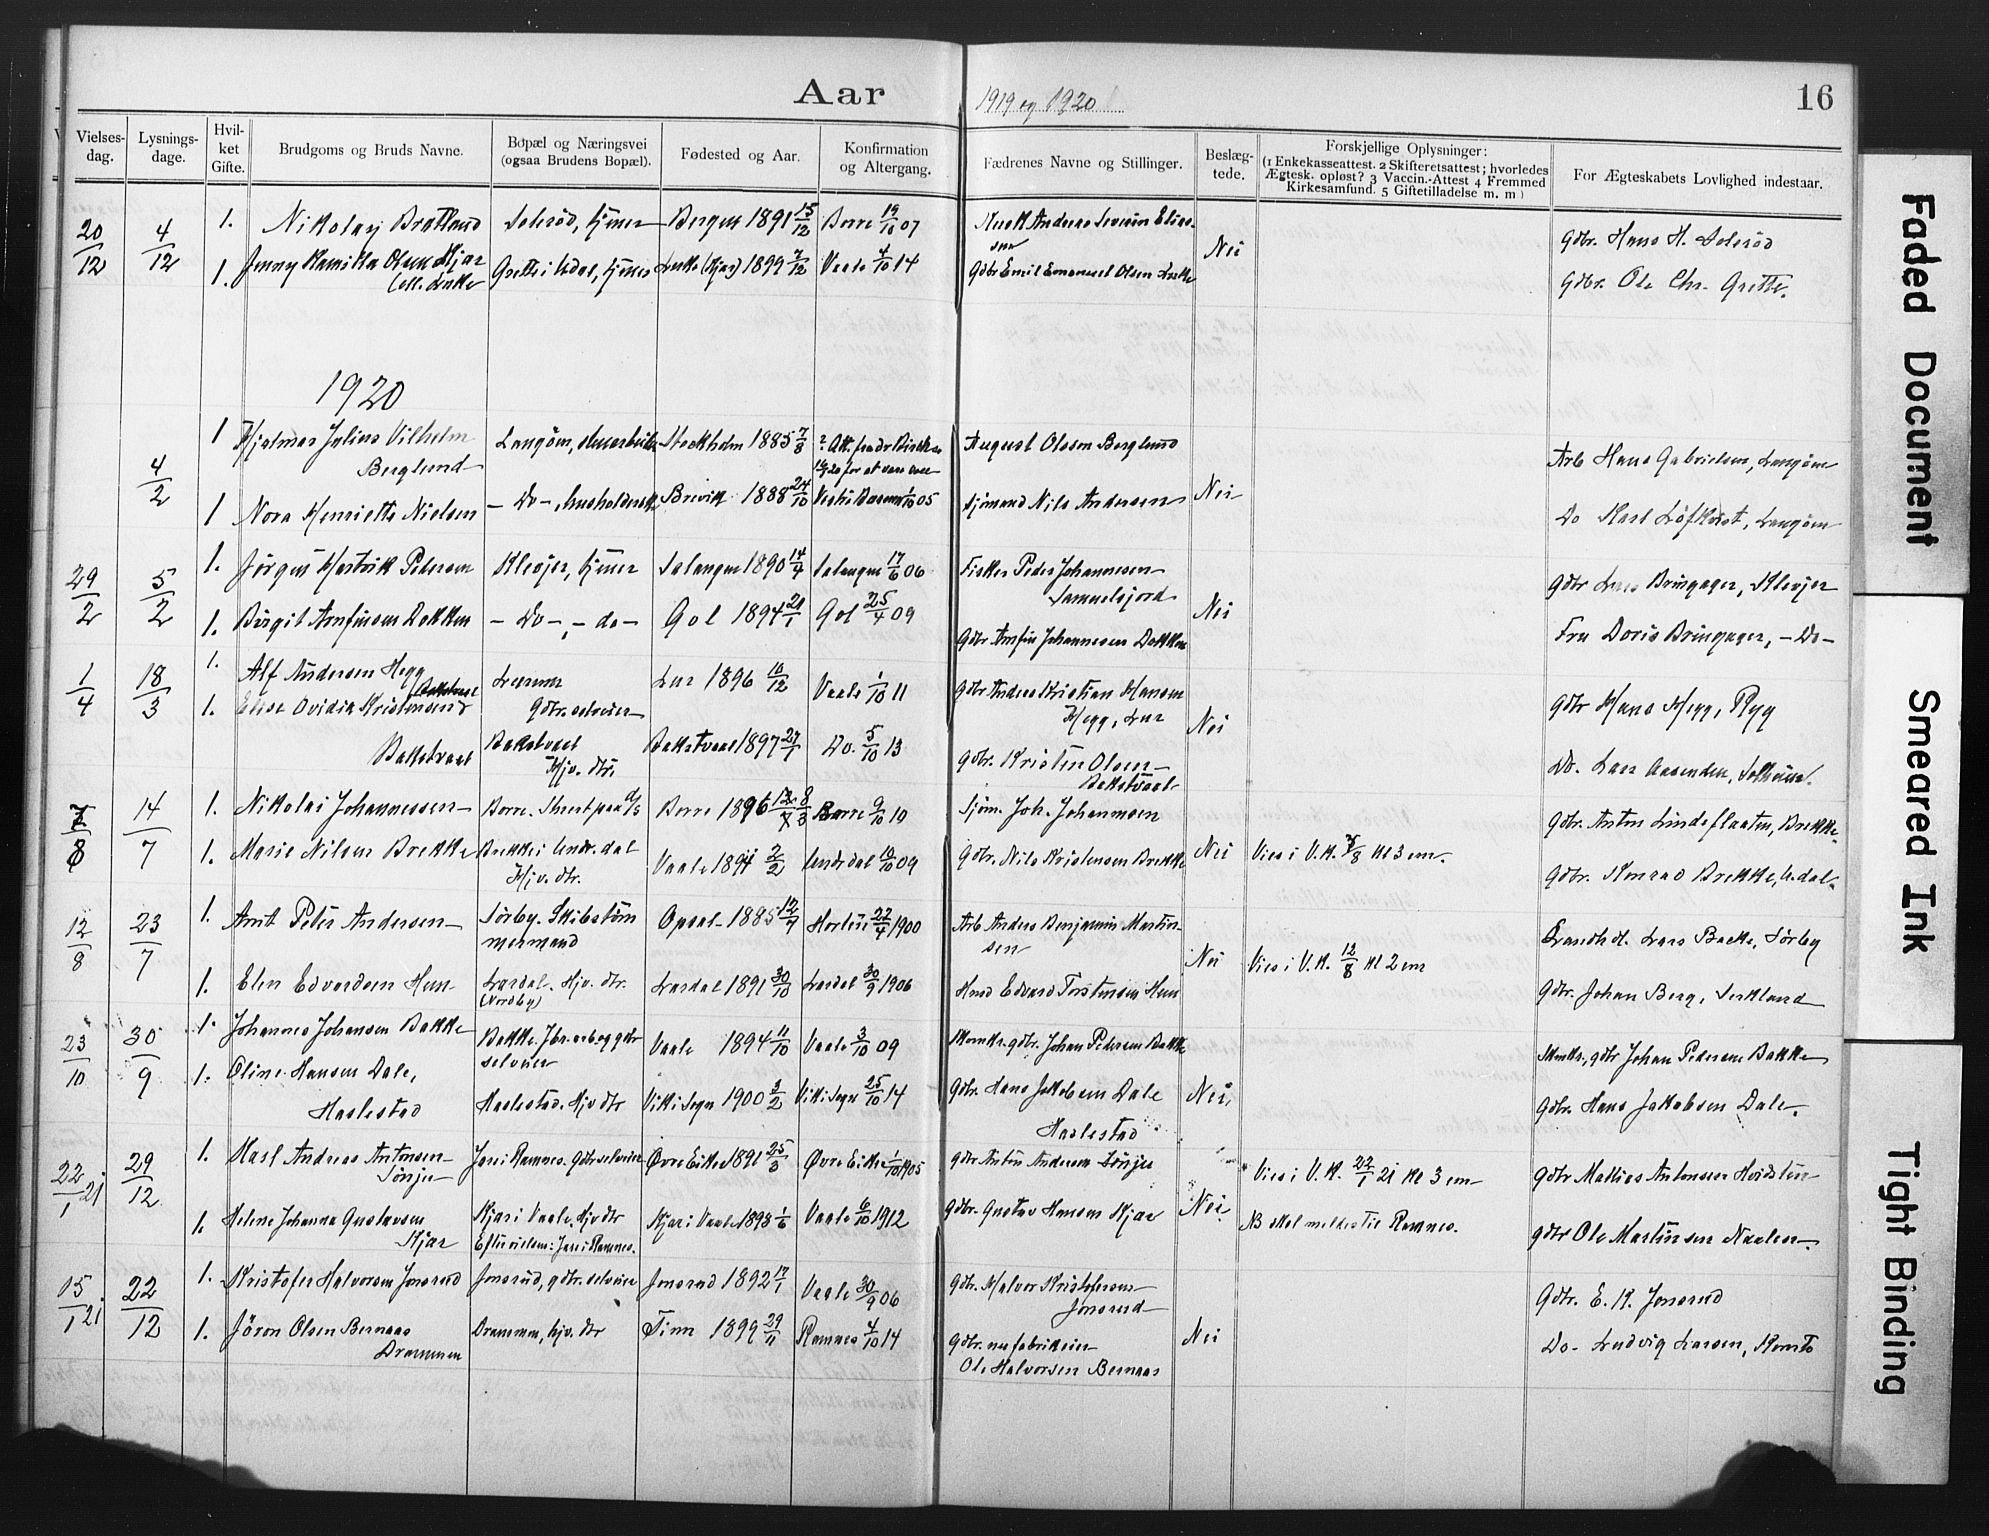 Aar 1919 og 1920
16
Vielses-dag. Lysnings-dage. Hvil-ket Gifte. Brudgoms og Bruds Navne. Bopæl og Næringsvei (ogsaa Brudens Bopæl). Fødested og Aar. Konfirmation og Altergang. Fædrenes Navne og Stillinger. Beslæg-tede. Forskjellige Oplysninger: (1 Enkekasseattest. 2 Skifteretsattest; hvorledes Ægtesk. opløst? 3 Vaccin.-Attest 4 Fremmed Kirkesamfund. 5 Giftetilladelse m. m) For Ægteskabets Lovlighed indestaar.
20/12 4/12 1. Nikolay Bratland Solerød, tjener Bergen 1891 15/12 Borre 19/10 07 Anders Severin Elias-sen Nei Gdbr. Hans H. Solerød
1. Jenny Kamilla Olsen Kjær Grette i Undal, tjener (Kjær) 1899 7/12 Vaale 4/10 14 Gdbr Emil Emanuel Olsen Gdbr. Ole Chr. Grette.
1920
4/2 1 Hjalmar Julius Vilhelm Berglund Langøen, Stockholm 1885 7/8 August Olsson Berglund Nei Arb Hans Gabrielsen, Langøen
1 Nora Henriette Nielsen - Do -, husholderske Brevik 1888 24/10 1/10 05 Sjømand Nils Andersen Do Karl Løfkvist, Langøen
29/2 5/2 1. Jørgen Hartvik Pedersen Klevjer, tjener Salangen 1890 14/4 Salangen 17/6 06 Fisker Peder Johannesen Samuelsjord Nei Gdbr Lars Bringager, Klevjer
1. Birgit Arnfinsen Dokken - Do -, - do - Gol 1894 21/1 Gol 25/4 09 Gdbr Arnfin Johannessen Dokken Fru Doris Bringager, - Do -
1/4 18/3 1. Alf Andersen Hegg Gdbr. selveier 1896 10/12 Vaale 1/10 11 Gdbr Anders Kristian Hansen Hegg, Nei Gdbr Hans Hegg, Ryg
1. Elise Ovidia Kristensen Bakstvaal Bakstvaal Hjv. dtr. Bakstvaal 1897 27/1 Do. 5/10 13 Gdbr. Kristen Olsen Bakstvaal Do. Lars Aasenden, Solheim.
7/8 14/7 1. Nikolai Johannessen Borre. Stuert paa d/s Borre 1896 8/3 Borre 9/10 10 Sjøm. Joh. Johannesen Nei Vies i V.K. 7/8 Kl 3 em. Gdbr. Anton Lindeflaaten, Brekke
1. Marie Nilsen Brekke Brekke i Undr.dal Hjv. dtr. Vaale 1894 2/2 Undrdal 10/10 09 Gdbr. Nils Kristensen Brekke Gdbr. Konrad Brekke, U.dal
12/8 23/7 1. Arnt Peter Andersen Sørby. Skibstømmermand Opsal 1885 12/7 Horten 22/4 1900 Arb Anders Benjamin Martin-sen Nei Vies i V.K. 12/8 Kl 2 em Landh. Lars Backe, Sørby
1. Elen Edvardsen Hem Lardal. Hjv. dtr. (Nordby) Lardal 1891 30/10 Lardal 30/9 1906 Husmd Edvard Torstensen Hem Gdbr. Johan Berg, Serkland
23/10 30/9 1. Johannes Johansen Bakke Bakke. Jbr.arb. og gdbr selveier Vaale 1894 11/10 Vaale 3/10 09 Skomkr. gdbr. Johan Pedersen Bakke Nei. Skmkr, gdbr Johan Pedersen Bakke
1. Oline Hansen Dale, Haslestad Haslestad. Hjv dtr Vik i Sogn 1900 3/2 Vik i Sogn 25/10 14 Gdbr. Hans Jakobsen Dale Haslestad Gdbr. Hans Jakobsen Dale.
22/1 21 29/12 1. Karl Andreas Antonsen Sønju Jare i Ramnes. Gdbr selveier Øvre Eiker 1891 25/3 Øvre Eiker 1/10 1905 Gdbr Anton Andersen Sønju Nei. Vies i V.K. 22/1 21 Kl 3 em Gdbr Mathias Antonsen Hvidsten
1. Helene Johanna Gustavsen Kjær Kjær i Vaale, Hjv dtr Efter vielsen: Jare i Ramnes. Kjær i Vaale 1893 1/6 Vaale 6/10 1912 Gdbr. Gustav Hansen Kjær NB skal meldes til Ramnes. Gdbr Ole Martinsen
15/1 21 22/12 1. Kristofer Halvorsen Jonsrud Jonsrud, gdbr. selveier Jonsrud 1892 17/1 Vaale 30/9 06 Gdbr. Halvor Kristofersen Jonsrud Nei Gdbr. E. K. Jonsrud
1. Jøron Olsen Bernaas Drammen Drammen, hjv. dtr Tinn 1899 29/11 Ramnes 4/10 14 Gdbr. Ole Halvorsen Bernaas Do - Ludvig Larsen,
Faded Document
Smeared Ink
Tight Binding